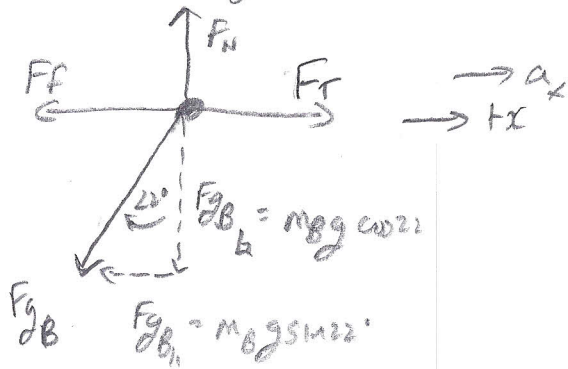 F_N
Ff
F_T
→ a_x
→ +x
22°
F_gB⊥ = m_B g cos22
F_gB
F_gB∥ = m_B g sin22°